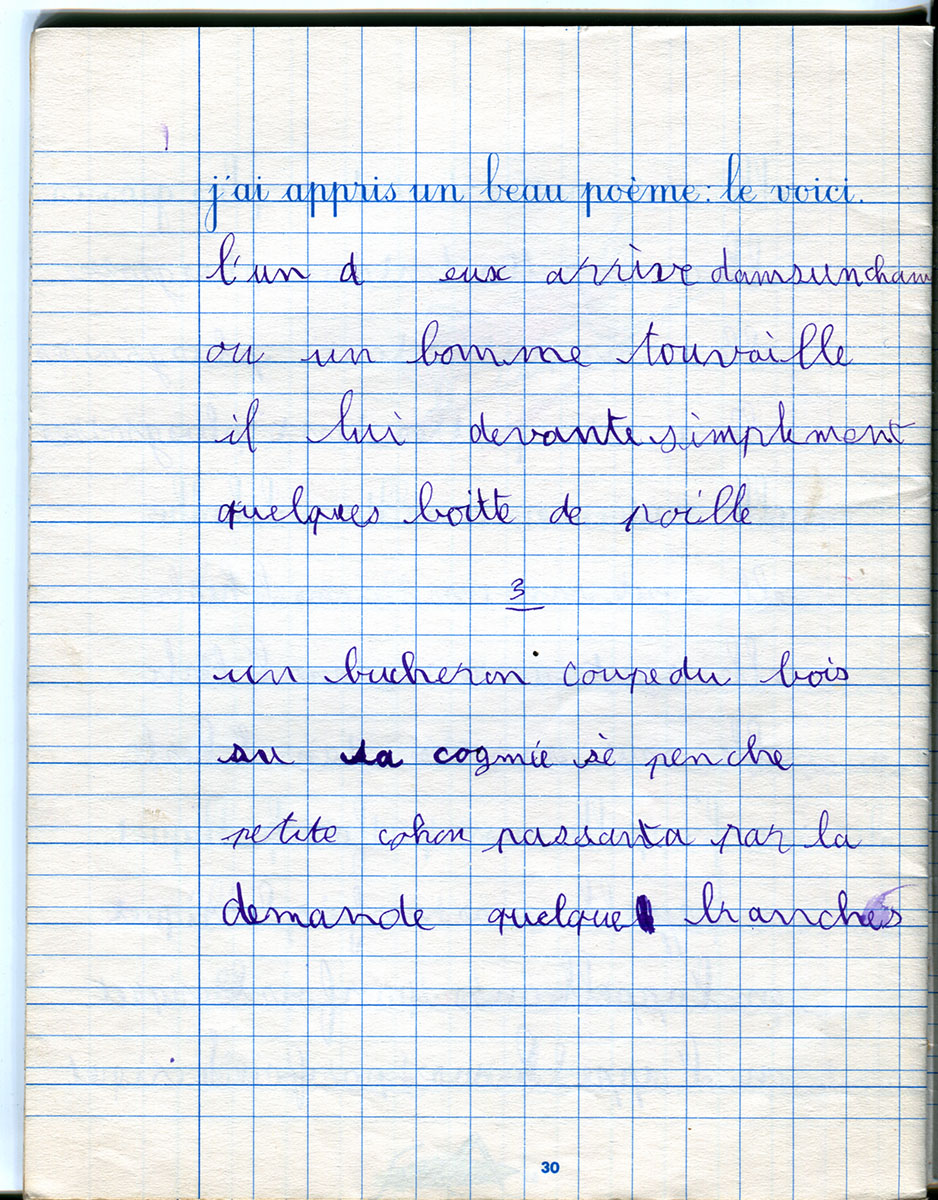 j'ai appris un beau poème: le voici.
l'un d eux arrive damsuncham
ou un bomme touvaille
il lui devante simplement
quelques boitte de poille
3
un bucheron coupedu bois
su sa cogmie sè penche
petite cohon passanta par la
demande quelque branches
30